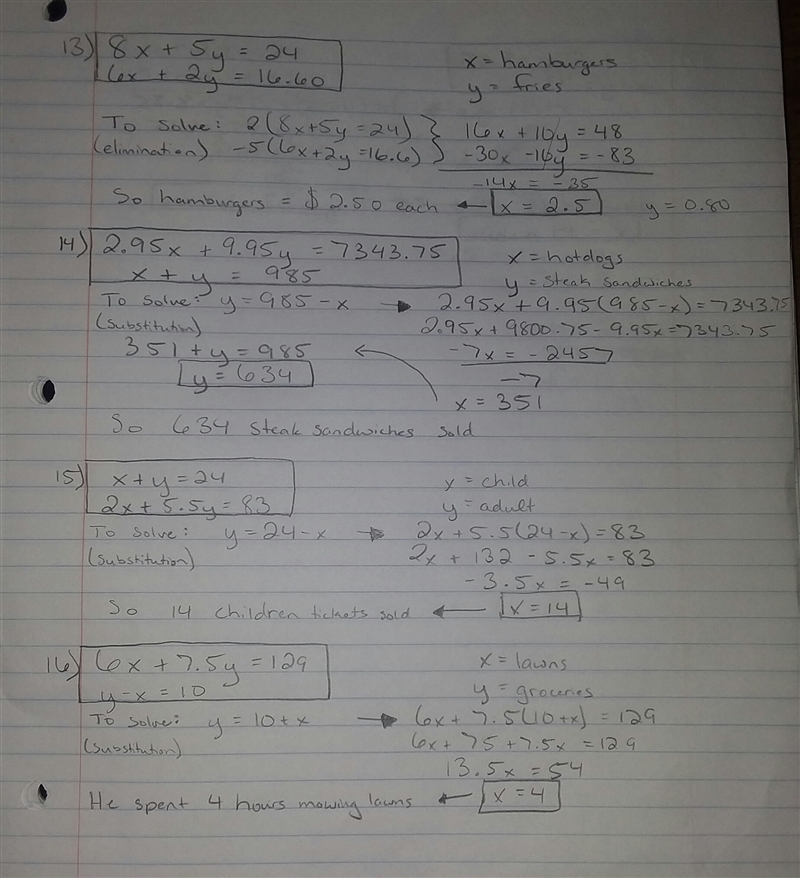 13) 8x + 5y = 24
6x + 2y = 16.60
x = hamburgers
y = fries
To solve: 2(8x+5y=24) } 16x + 10y = 48
(elimination) -5(6x+2y=16.6) } -30x - 10y = -83
-14x = -35
So hamburgers = $2.50 each ← x = 2.5 y = 0.80
14) 2.95x + 9.95y = 7343.75
x + y = 985
x = hotdogs
y = steak sandwiches
To solve: y = 985 - x → 2.95x + 9.95(985-x) = 7343.75
(substitution) 2.95x + 9800.75 - 9.95x = 7343.75
351 + y = 985 ← -7x = -2457
y = 634 -7
x = 351
So 634 steak sandwiches sold
15) x + y = 24
2x + 5.5y = 83
x = child
y = adult
To solve: y = 24 - x → 2x + 5.5(24-x) = 83
(substitution) 2x + 132 - 5.5x = 83
-3.5x = -49
So 14 children tickets sold ← x = 14
16) 6x + 7.5y = 129
y - x = 10
x = lawns
y = groceries
To solve: y = 10 + x → 6x + 7.5(10+x) = 129
(substitution) 6x + 75 + 7.5x = 129
13.5x = 54
He spent 4 hours mowing lawns ← x = 4